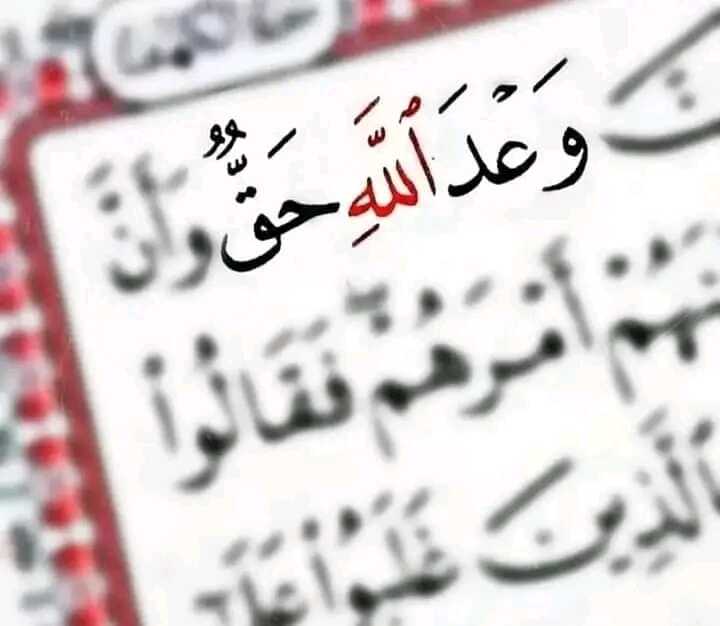 وَعْدَ ٱللَّهِ حَقٌّ وَأَنَّ
أَمْرَهُمْ ۖ فَقَالُوا۟
ٱلَّذِينَ غَلَبُوا۟ عَلَىٰٓ